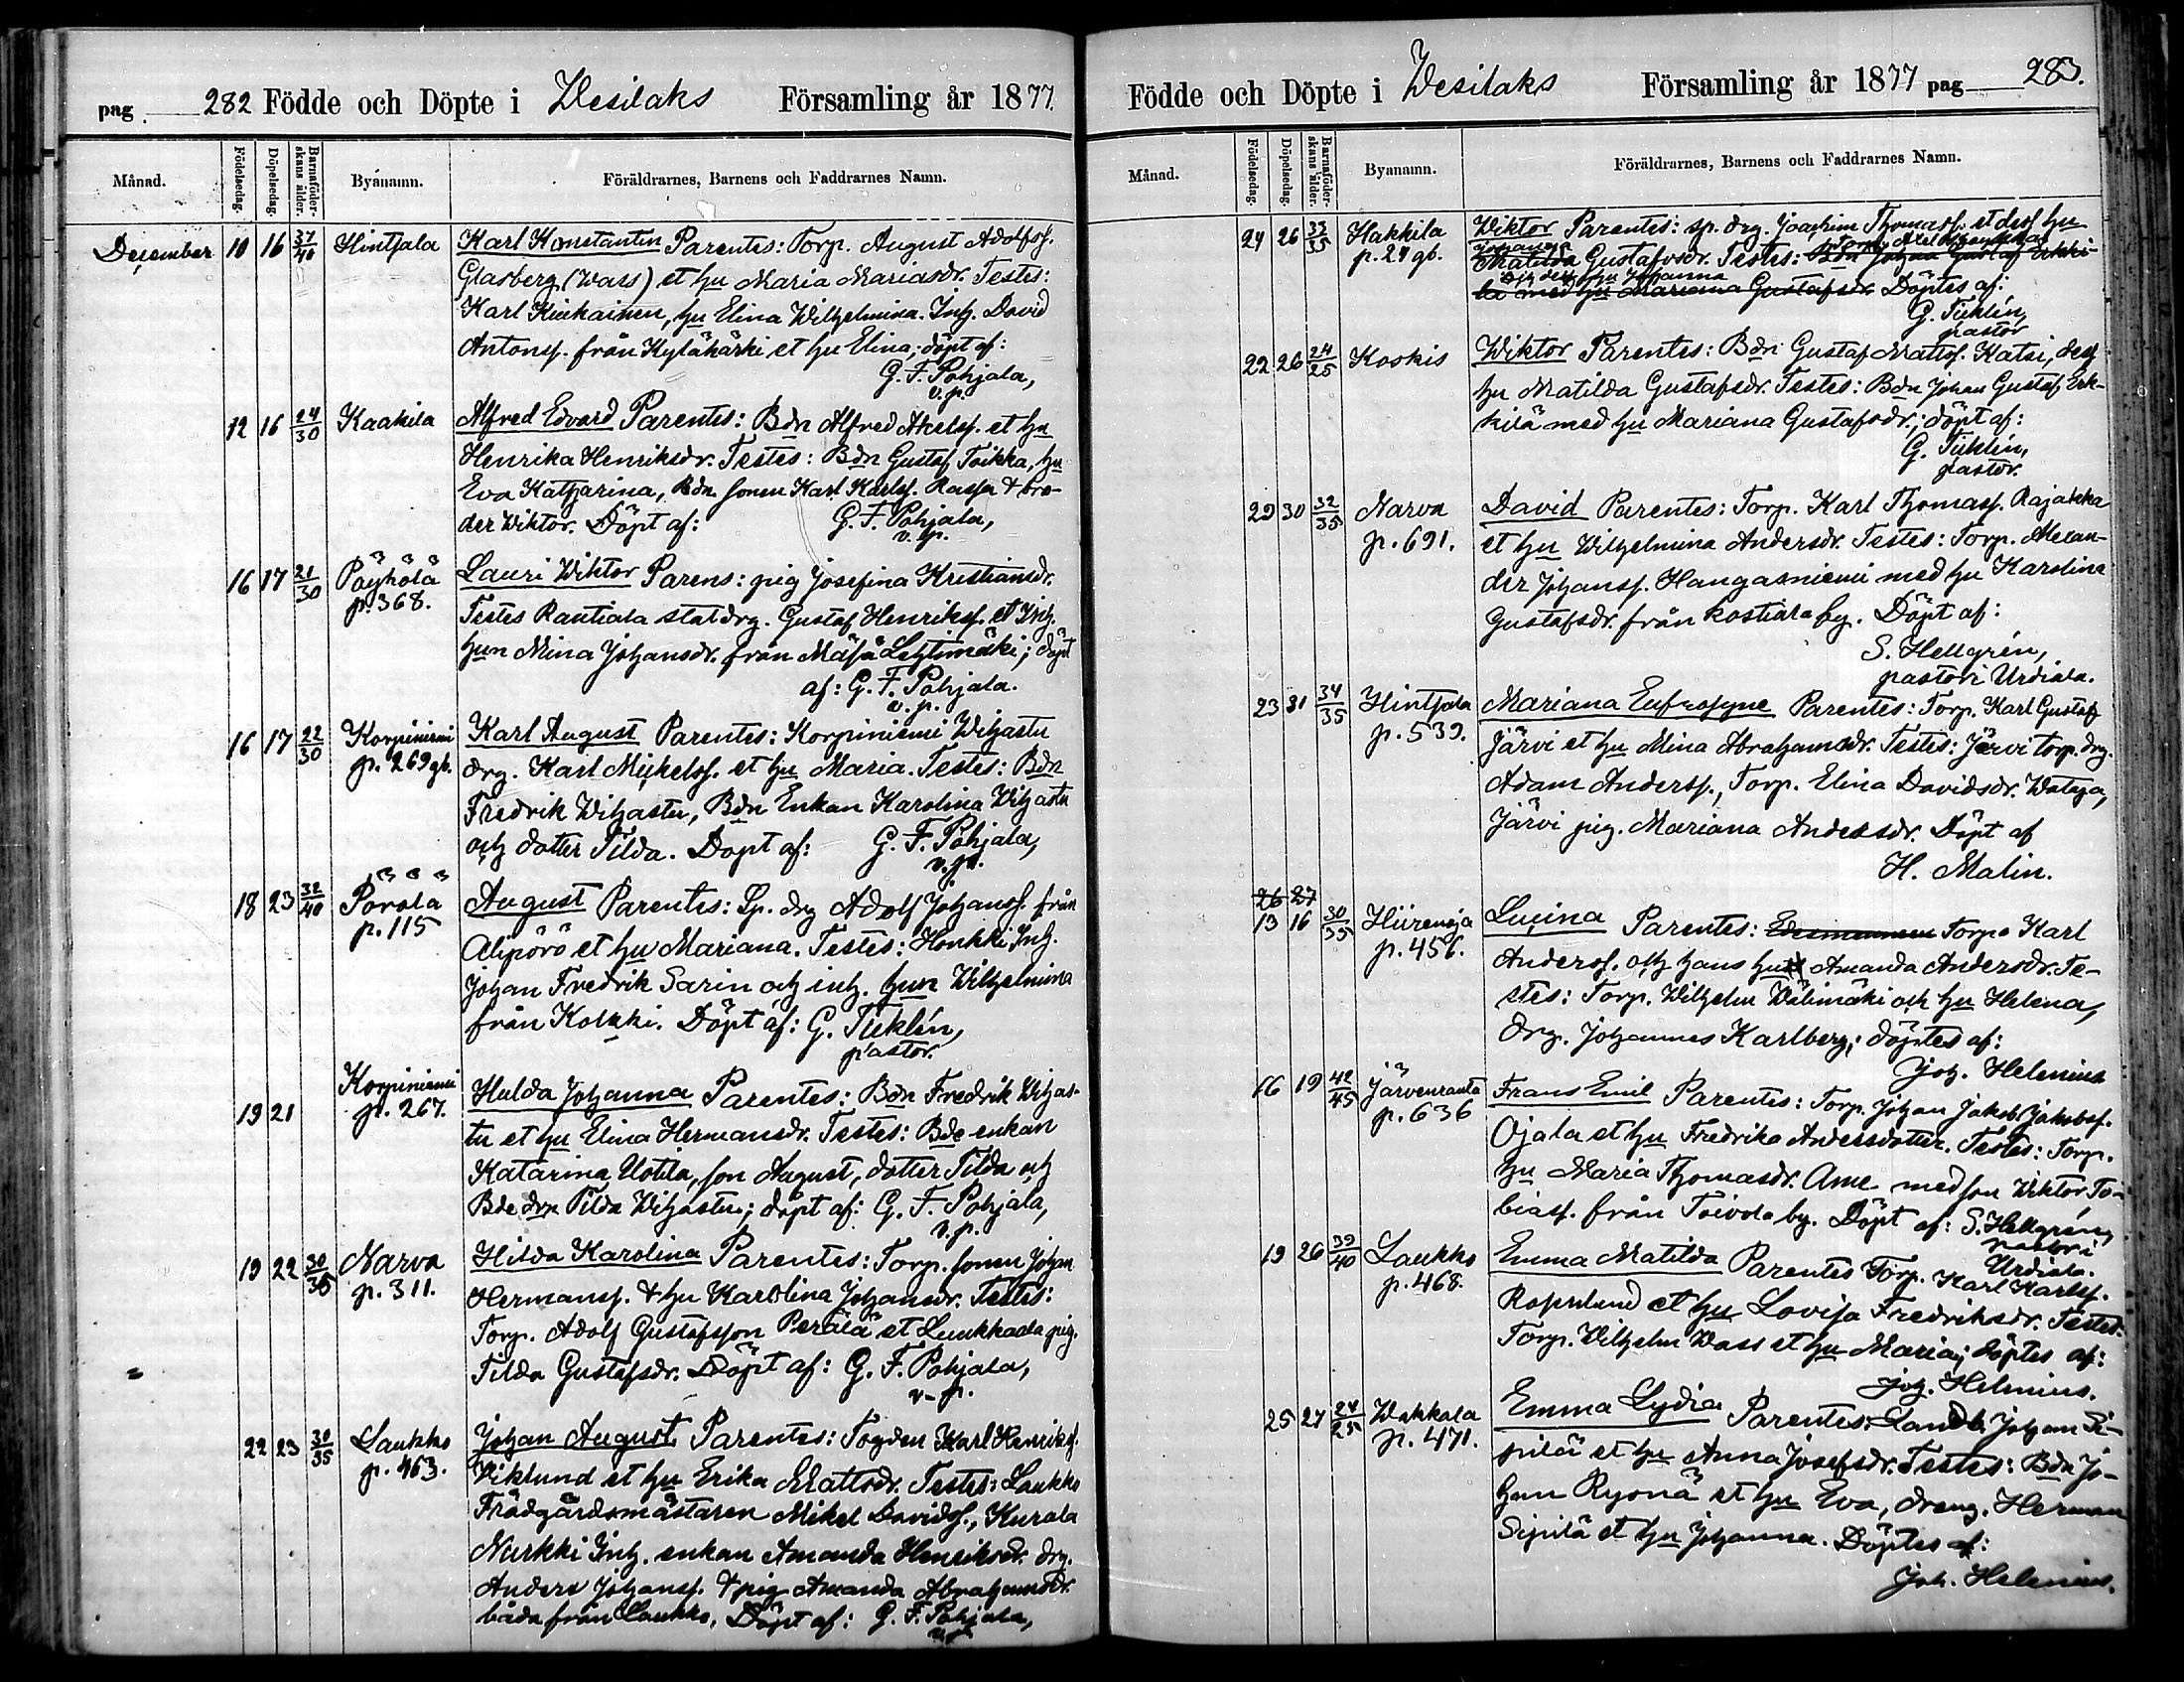 pag. 282 Födde och Döpte i Wesilaks Församling år 1877.
Månad. Födelsedag. Döpelsedag. Barnaföder-skans ålder. Byanamn. Föräldrarnes, Barnens och Faddrarnes Namn.
December 10 16 37/40 Hintsala Karl Konstantin Parentes: Torp. August Adolfss.
Glasberg (Wass) et hu Maria Mariasdr. Testes:
Karl Kiukainen, hu Elina Wilhelmina. Inh. David
Antonss. från Kylähärki, et hu Elina; döpt af:
G. F. Pohjala,
v. p.
12 16 24/30 Kaakila Alfred Edvard Parentes: Bdn Alfred Akelss. et hu
Henrika Henriksdr. Testes: Bdn Gustaf Toikka, hu
Eva Katharina, Bdn sonen Karl Karlss. Rassa & bro-
der Wiktor. Döpt af: G. F. Pohjala,
v. p.
16 17 21/30 Pöyhölä Lauri Wiktor Parens: pig Josefina Kristiansdr.
p. 368. Testes Rantiala statdrg. Gustaf Henrikss. et Inh.
hun Mina Johansdr. från Mäsä Lehtimäki; döpt
af: G. F. Pohjala.
v. p.
16 17 22/30 Korpiniemi Karl August Parentes: Korpiniemi Wihastu
p. 269 gb. drg. Karl Mickelss. et hu Maria. Testes: Bdn
Fredrik Wihastu, Bdn Enkan Karolina Wihastu
och dotter Tilda. Döpt af: G. F. Pohjala,
v. p.
18 23 32/40 Pörölä August Parentes: Sp. drg Adolf Johanss. från
p. 115 Alipörö et hu Mariana. Testes: Honkki Inh.
Johan Fredrik Sarin och inh. hun Wilhelmina
från Kolkki. Döpt af: G. Ticklén,
pastor.
19 21 Korpiniemi Hulda Johanna Parentes: Bdn Fredrik Wihas-
p. 267. tu et hu Elina Hermansdr. Testes: Bde enkan
Katarina Uotila, son August, dotter Tilda och
Bde drn Tilda Wihastu; döpt af: G. F. Pohjala,
v. p.
19 22 30/35 Narva Hilda Karolina Parentes: Torp. sonen Johan
p. 311. Hermanss. & hu Karolina Johansdr. Testes:
Torp. Adolf Gustafsson Perälä et Luukkaala pig.
Tilda Gustafsdr. Döpt af: G. F. Pohjala,
v. p.
22 23 30/35 Laukko Johan August Parentes: Fogden Karl Henrikss.
p. 463. Wiklund et hu Erika Mattsdr. Testes: Laukko
Trädgårdsmästaren Mikel Davidss., Kurala
Nurkki Inh. enkan Amanda Henriksdr. drg.
Anders Johanss. & pig Amanda Abrahamsdr.
båda från Laukko. Döpt af: G. F. Pohjala,
v. p.
Födde och Döpte i Wesilaks Församling år 1877 pag 283.
Månad. Födelsedag. Döpelsedag. Barnaföder-skans ålder. Byanamn. Föräldrarnes, Barnens och Faddrarnes Namn.
24 26 33/35 Hakkila Wiktor Parentes: sp. drg. Joachim Thomass. et dess hu
p. 24 gb. Johanna
Matilda Gustafsdr. Testes: Bdn Johan Gustaf Erkki-
och dess hu Johanna
lä med hu Mariana Gustafsdr. Döptes af:
G. Ticklén,
pastor
22 26 24/25 Koskis Wiktor Parentes: Bdn Gustaf Mattss. Katsi, dess
hu Matilda Gustafsdr. Testes: Bdn Johan Gustaf Erk-
kilä med hu Mariana Gustafsdr.; döpt af:
G. Ticklén,
pastor.
29 30 32/35 Narva David Parentes: Torp. Karl Thomass. Rajakka
p. 691. et hu Wilhelmina Andersdr. Testes: Torp. Alexan-
der Johanss. Hangasniemi med hu Karolina
Gustafsdr. från Kostiala by. Döpt af:
S. Hellgrén,
pastor i Urdiala.
23 31 34/35 Hintsala Mariana Eufrosyne Parentes: Torp. Karl Gustaf
p. 539. Järvi et hu Mina Abrahamsdr. Testes: Järvi torp. drg.
Adam Anderss., Torp. Elina Davidsdr. Wataja,
Järvi pig. Mariana Andersdr. Döpt af
H. Malin.
26 27
13 16 30/35 Hiirenoja Lucina Parentes: Torp. Karl
p. 456. Anderss. och hans hu Amanda Andersdr. Te-
stes: Torp. Wilhelm Wälimäki och hu Helena,
drg. Johannes Karlberg; döptes af:
Joh. Helenius
16 19 42/45 Järvenranta Frans Emil Parentes: Torp. Johan Jakob Jakobss.
p. 636 Ojala et hu Fredrika Andersdotter. Testes: Torp.
hu Maria Thomasdr. Ame med son Wiktor To-
biass. från Toivola by. Döpt af: S. Hellgrén,
pastor i
Urdiala.
19 26 39/40 Laukko Emma Matilda Parentes Torp. Karl Karlss.
p. 468. Rosenlund et hu Lovisa Fredriksdr. Testes:
Torp. Wilhelm Wass et hu Maria; döptes af:
Joh. Helenius.
25 27 24/25 Wakkala Emma Lydia Parentes: Landb. Johan Si-
p. 471. pilä et hu Anna Josefsdr. Testes: Bdn Jo-
han Ryönä et hu Eva, dreng. Herman
Sipilä et hu Johanna. Döptes af:
Joh. Helenius.